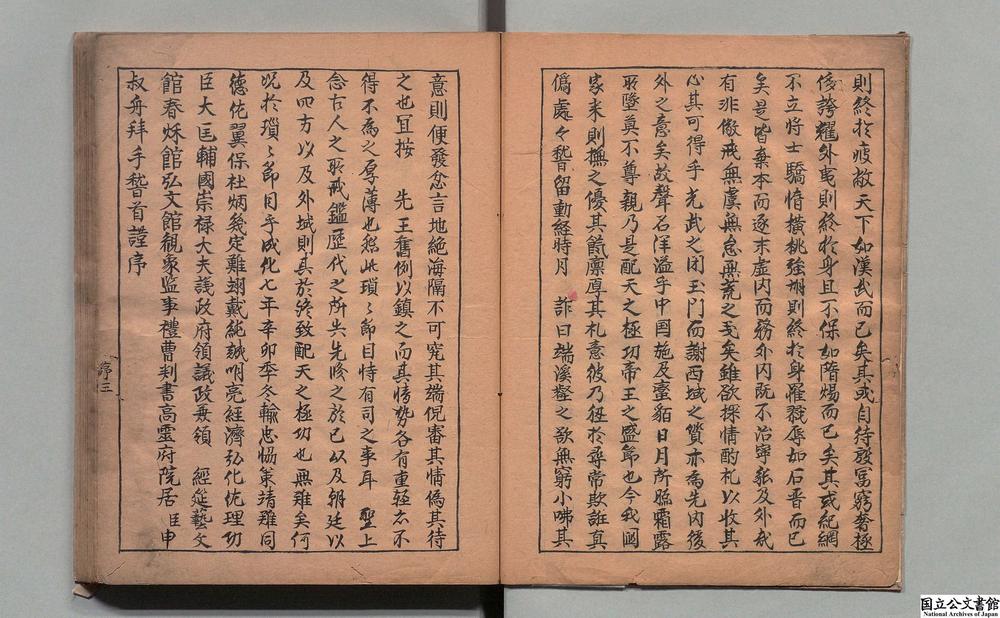 則終於疲敝天下如漢武而已矣其或自恃殷富窮奢極
侈誇耀外夷則終於身且不保如隋煬而已矣其或紀網
不立将士驕惰橫挑强胡則終於身罹戮辱如石晋而已
矣是皆棄本而逐末虚内而務外内既不治寧能及外哉
有非儆戒無虞無怠無荒之義矣雖欲探情酌礼以收其
心其可得乎光武之閉玉門而謝西域之質亦為先内後
外之意矣故聲名洋溢乎中国施及蛮貊日月所照霜露
所墜莫不尊親乃是配天之極功帝王之盛節也今我國
家来則撫之優其餼廪厚其礼意彼乃狃於尋常欺誑真
偽處々稽留動経時月 詐曰端溪壑之欲無窮小咈其
意則便發忿言地絶海隔不可究其端倪審其情偽其待
之也宜按 先王舊例以鎮之而其情勢各有重軽亦不
得不為之厚薄也然此瑣ゝ節目特有司之事耳 聖上
念古人之所戒鑑歴代之所失先修之於已以及朝廷以
及四方以及外域則其於終致配天之極功也無難矣何
况於瑣ゝ節目乎成化七年辛卯季冬輸忠協策靖難同
德佐翼保社炳幾定難翊戴純誠明亮経濟弘化佐理功
臣大匡輔國崇禄大夫議政府領議政兼領 経筵藝文
館春秋館弘文館観象監事禮曹判書高靈府院君 臣申
叔舟拝手稽首謹序
序三
国立公文書館
National Archives of Japan